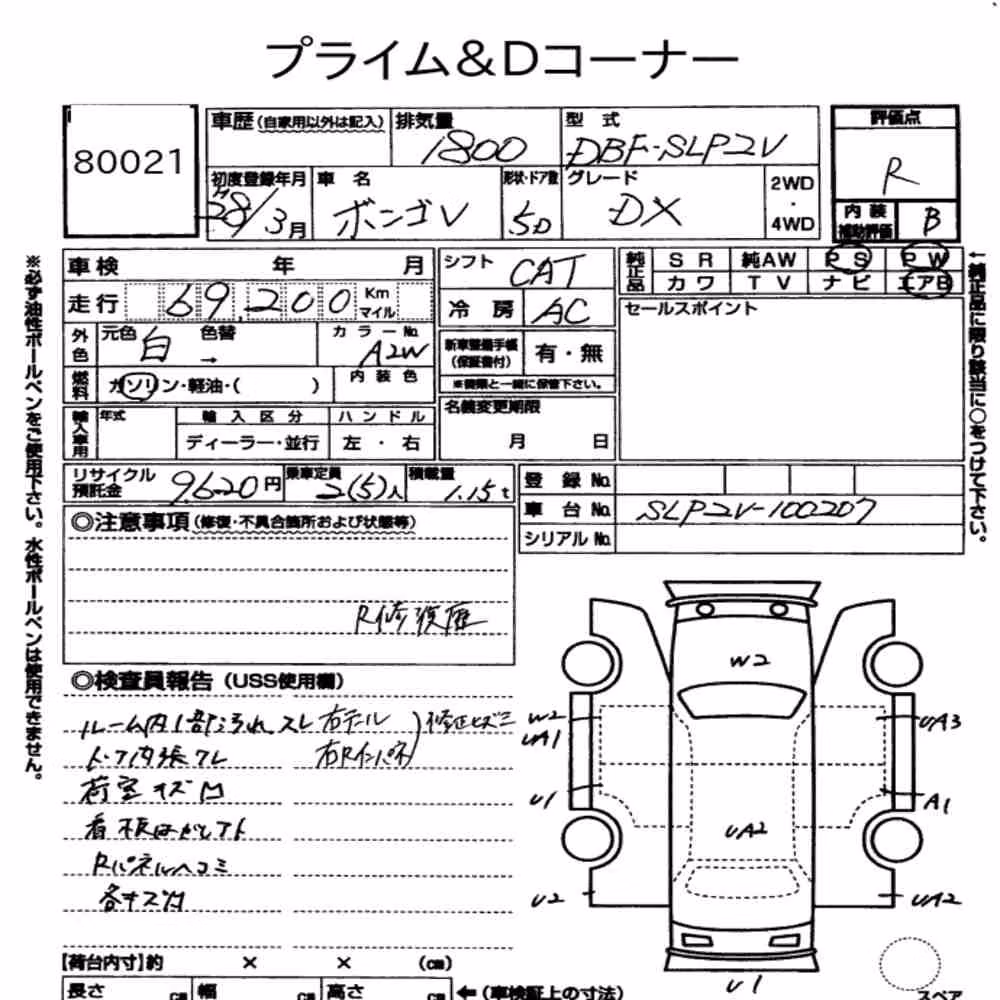 プライム&Dコーナー
80021
車歴(自家用以外は記入) 排気量 1800 型式 DBF-SLP2V 評価点 R
初度登録年月 28/3月 車名 ボンゴV 形状・ドア数 5D グレード DX 2WD・4WD 内装補助評価 B
車検 年 月 シフト CAT 純正品 SR 純AW PS PW
カワ TV ナビ エアB
走行 69,200 Km マイル 冷房 AC セールスポイント
外色 元色 白 色替 → カラーNo. A2W 新車整備手帳(保証書付) 有・無
燃料 ガソリン・軽油・( ) 内装色 ※書類と一緒に保管下さい。
輸入車用 年式 輸入区分 ハンドル 名義変更期限
ディーラー・並行 左・右 月 日
リサイクル預託金 9620円 乗車定員 2(5)人 積載量 1.15t 登録No.
車台No. SLP2V-100207
シリアルNo.
◎注意事項(修復・不具合箇所および状態等)
R修復歴
◎検査員報告(USS使用欄)
ルーム内1部汚れ スレ 右テール
右Rインパネ
修正ヒズミ
トップ内張ワレ
荷室キズ凹
看板はがしアト
Rパネルヘコミ
各キズ凹
【荷台内寸】約 × × (cm)
長さ cm 幅 cm 高さ cm ←(車検証上の寸法)
W2
W2
UA1
UA3
U1
A1
UA2
U2
UA2
U1
スペア
※必ず油性ボールペンをご使用下さい。水性ボールペンは使用できません。
←純正品に限り該当に○をつけて下さい。